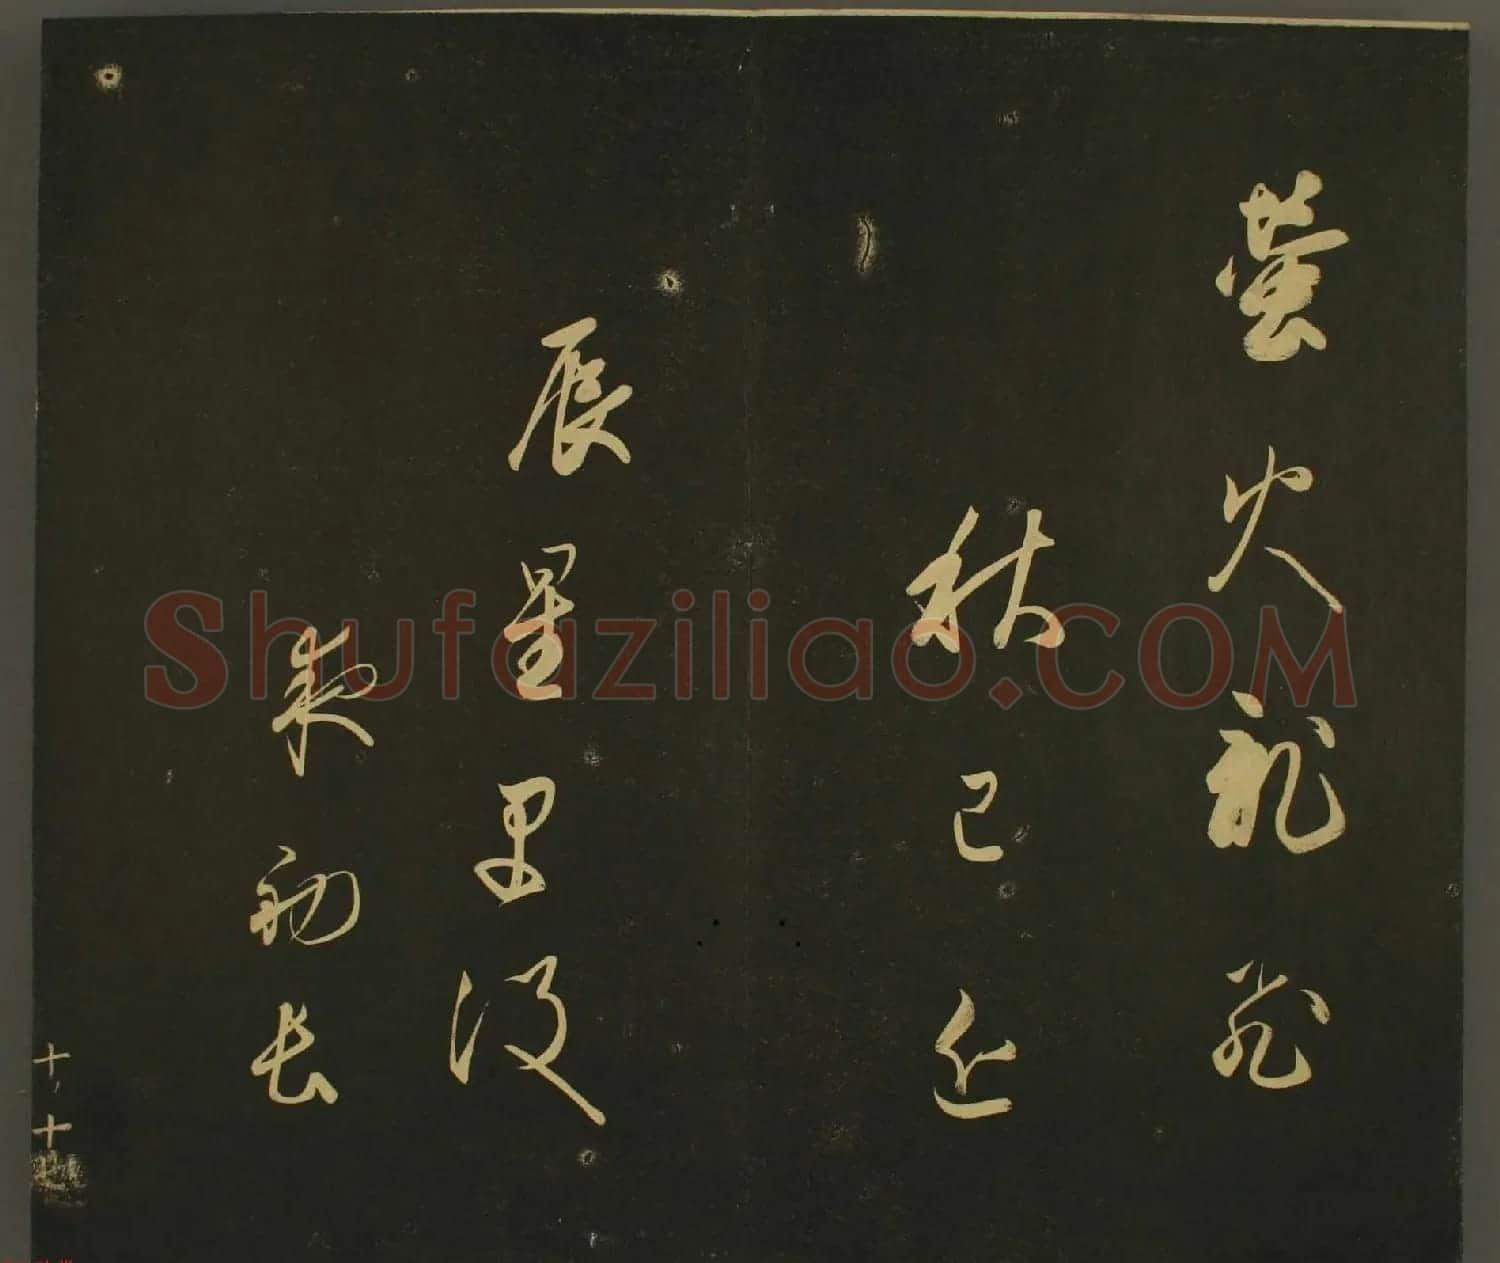 螢火亂飛
秋已近
辰星早没
夜初長
十、十
Shufaziliao.COM